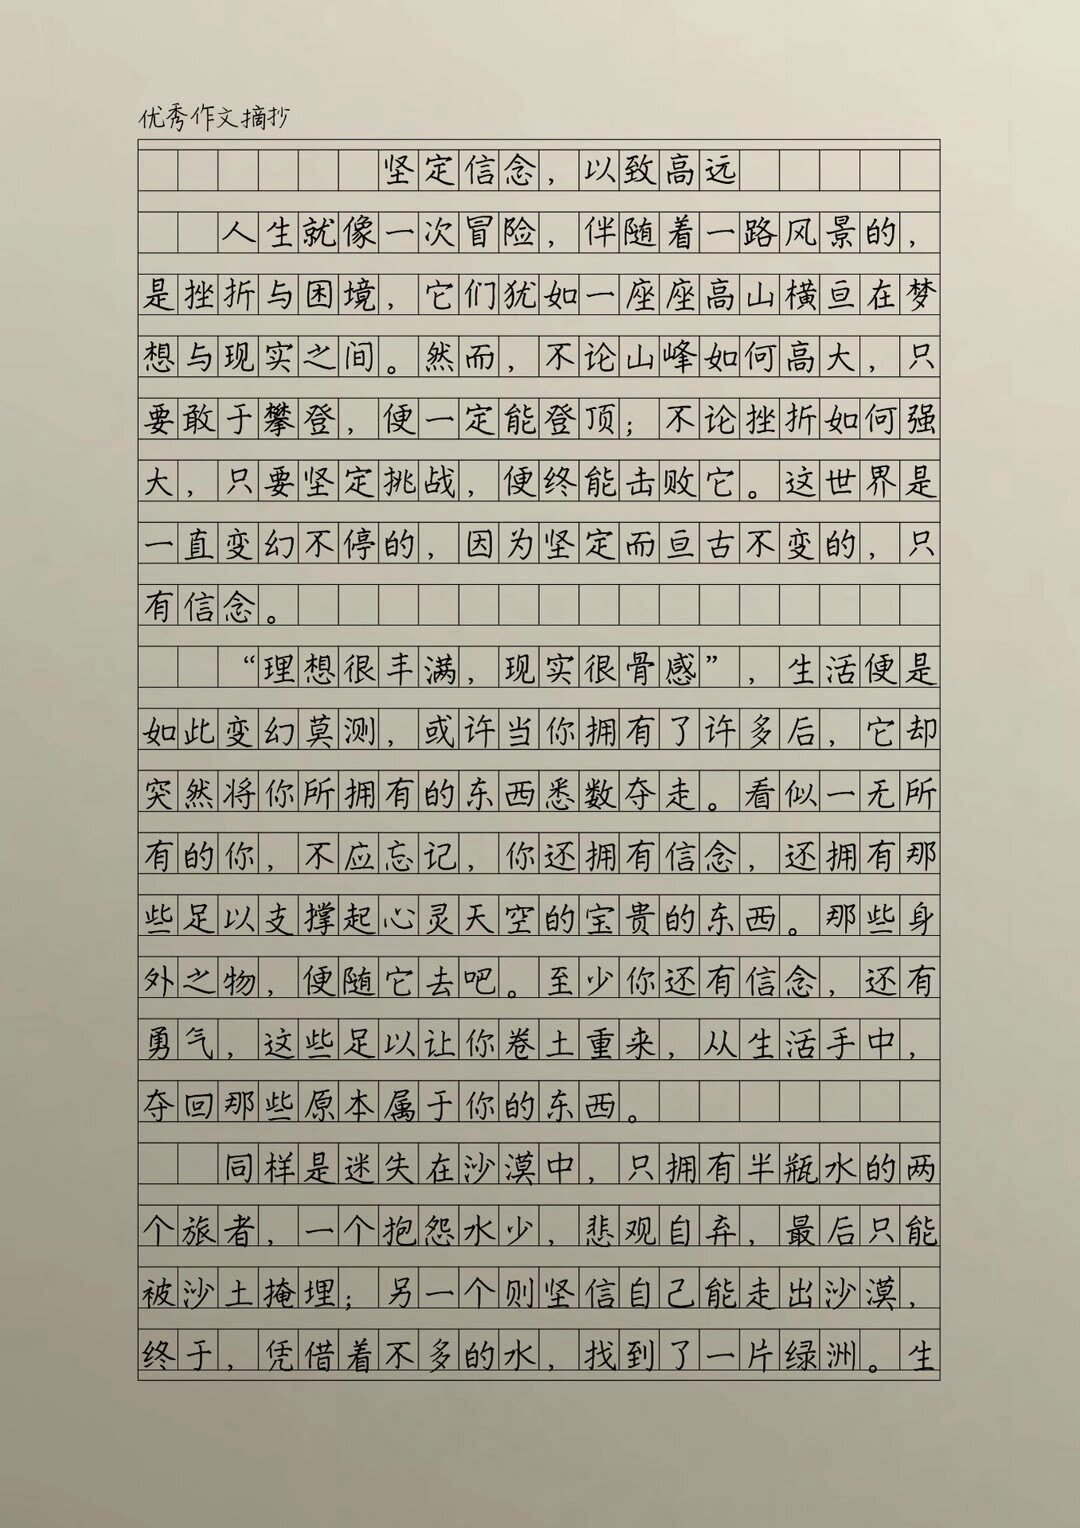 优秀作文摘抄
坚定信念，以致高远
人生就像一次冒险，伴随着一路风景的，
是挫折与困境，它们犹如一座座高山横亘在梦
想与现实之间。然而，不论山峰如何高大，只
要敢于攀登，便一定能登顶；不论挫折如何强
大，只要坚定挑战，便终能击败它。这世界是
一直变幻不停的，因为坚定而亘古不变的，只
有信念。
“理想很丰满，现实很骨感”，生活便是
如此变幻莫测，或许当你拥有了许多后，它却
突然将你所拥有的东西悉数夺走。看似一无所
有的你，不应忘记，你还拥有信念，还拥有那
些足以支撑起心灵天空的宝贵的东西。那些身
外之物，便随它去吧。至少你还有信念，还有
勇气，这些足以让你卷土重来，从生活手中，
夺回那些原本属于你的东西。
同样是迷失在沙漠中，只拥有半瓶水的两
个旅者，一个抱怨水少，悲观自弃，最后只能
被沙土掩埋；另一个则坚信自己能走出沙漠，
终于，凭借着不多的水，找到了一片绿洲。生